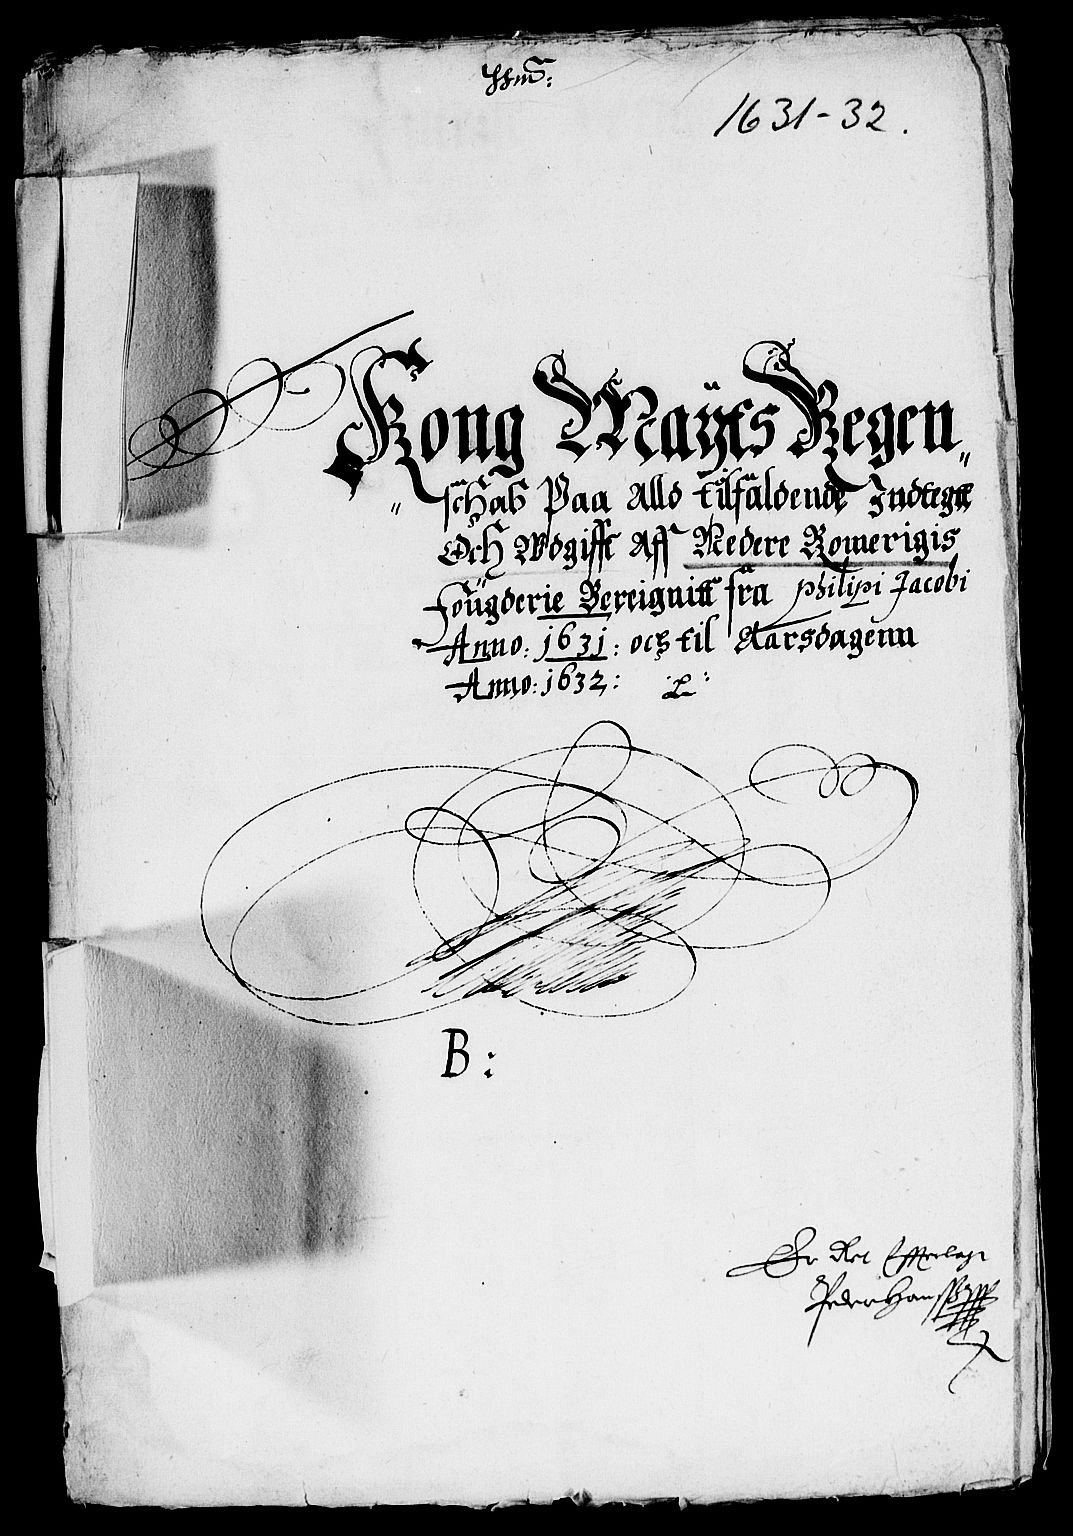 1631-32.
Kong Maÿts Regen„
„schab Paa Alld tilfaldende Indtegtt
Och Wdgifft Aff Nedere Romerigis
fougderie Bereignitt fra Philipi Jacobi
Anno: 1631: och til Aarsdagenn
Anno: 1632:
B:
Er Ret
Peder Hanss